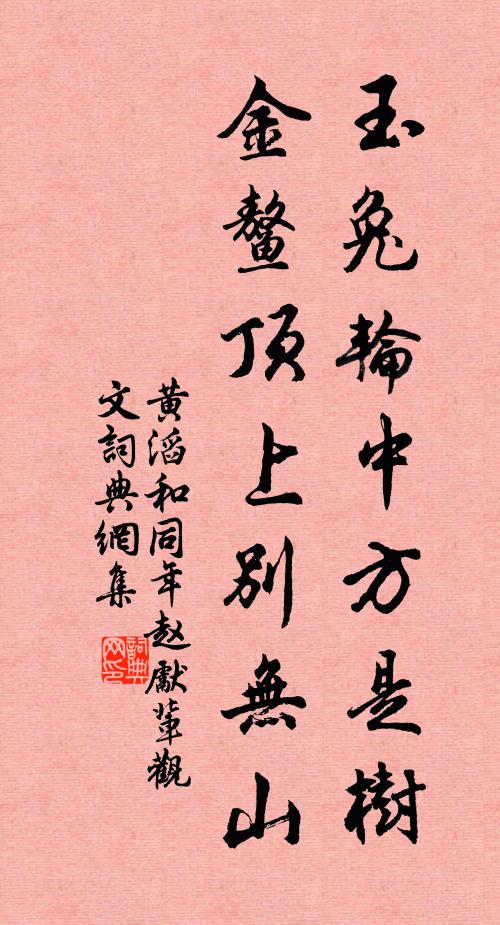 玉兔輪中方是樹
金鰲頂上別無山
黃滔和同年趙獻輩觀
文詞典網集
詞典网印